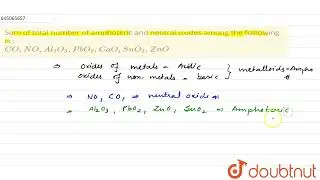 645065657
Sum of total number of amphoteric and neutral oxides among the following
is :
CO, NO, Al₂O₃, PbO₂, CaO, SnO₂, ZnO
⇒ Oxides of metals = Acidic
oxides of non metals = basic } metalloids = Ampho
⇒ NO, CO, ⇒ neutral oxide
⇒ Al₂O₃, PbO₂, ZnO, SnO₂ ⇒ Amphoteric
doubtnut